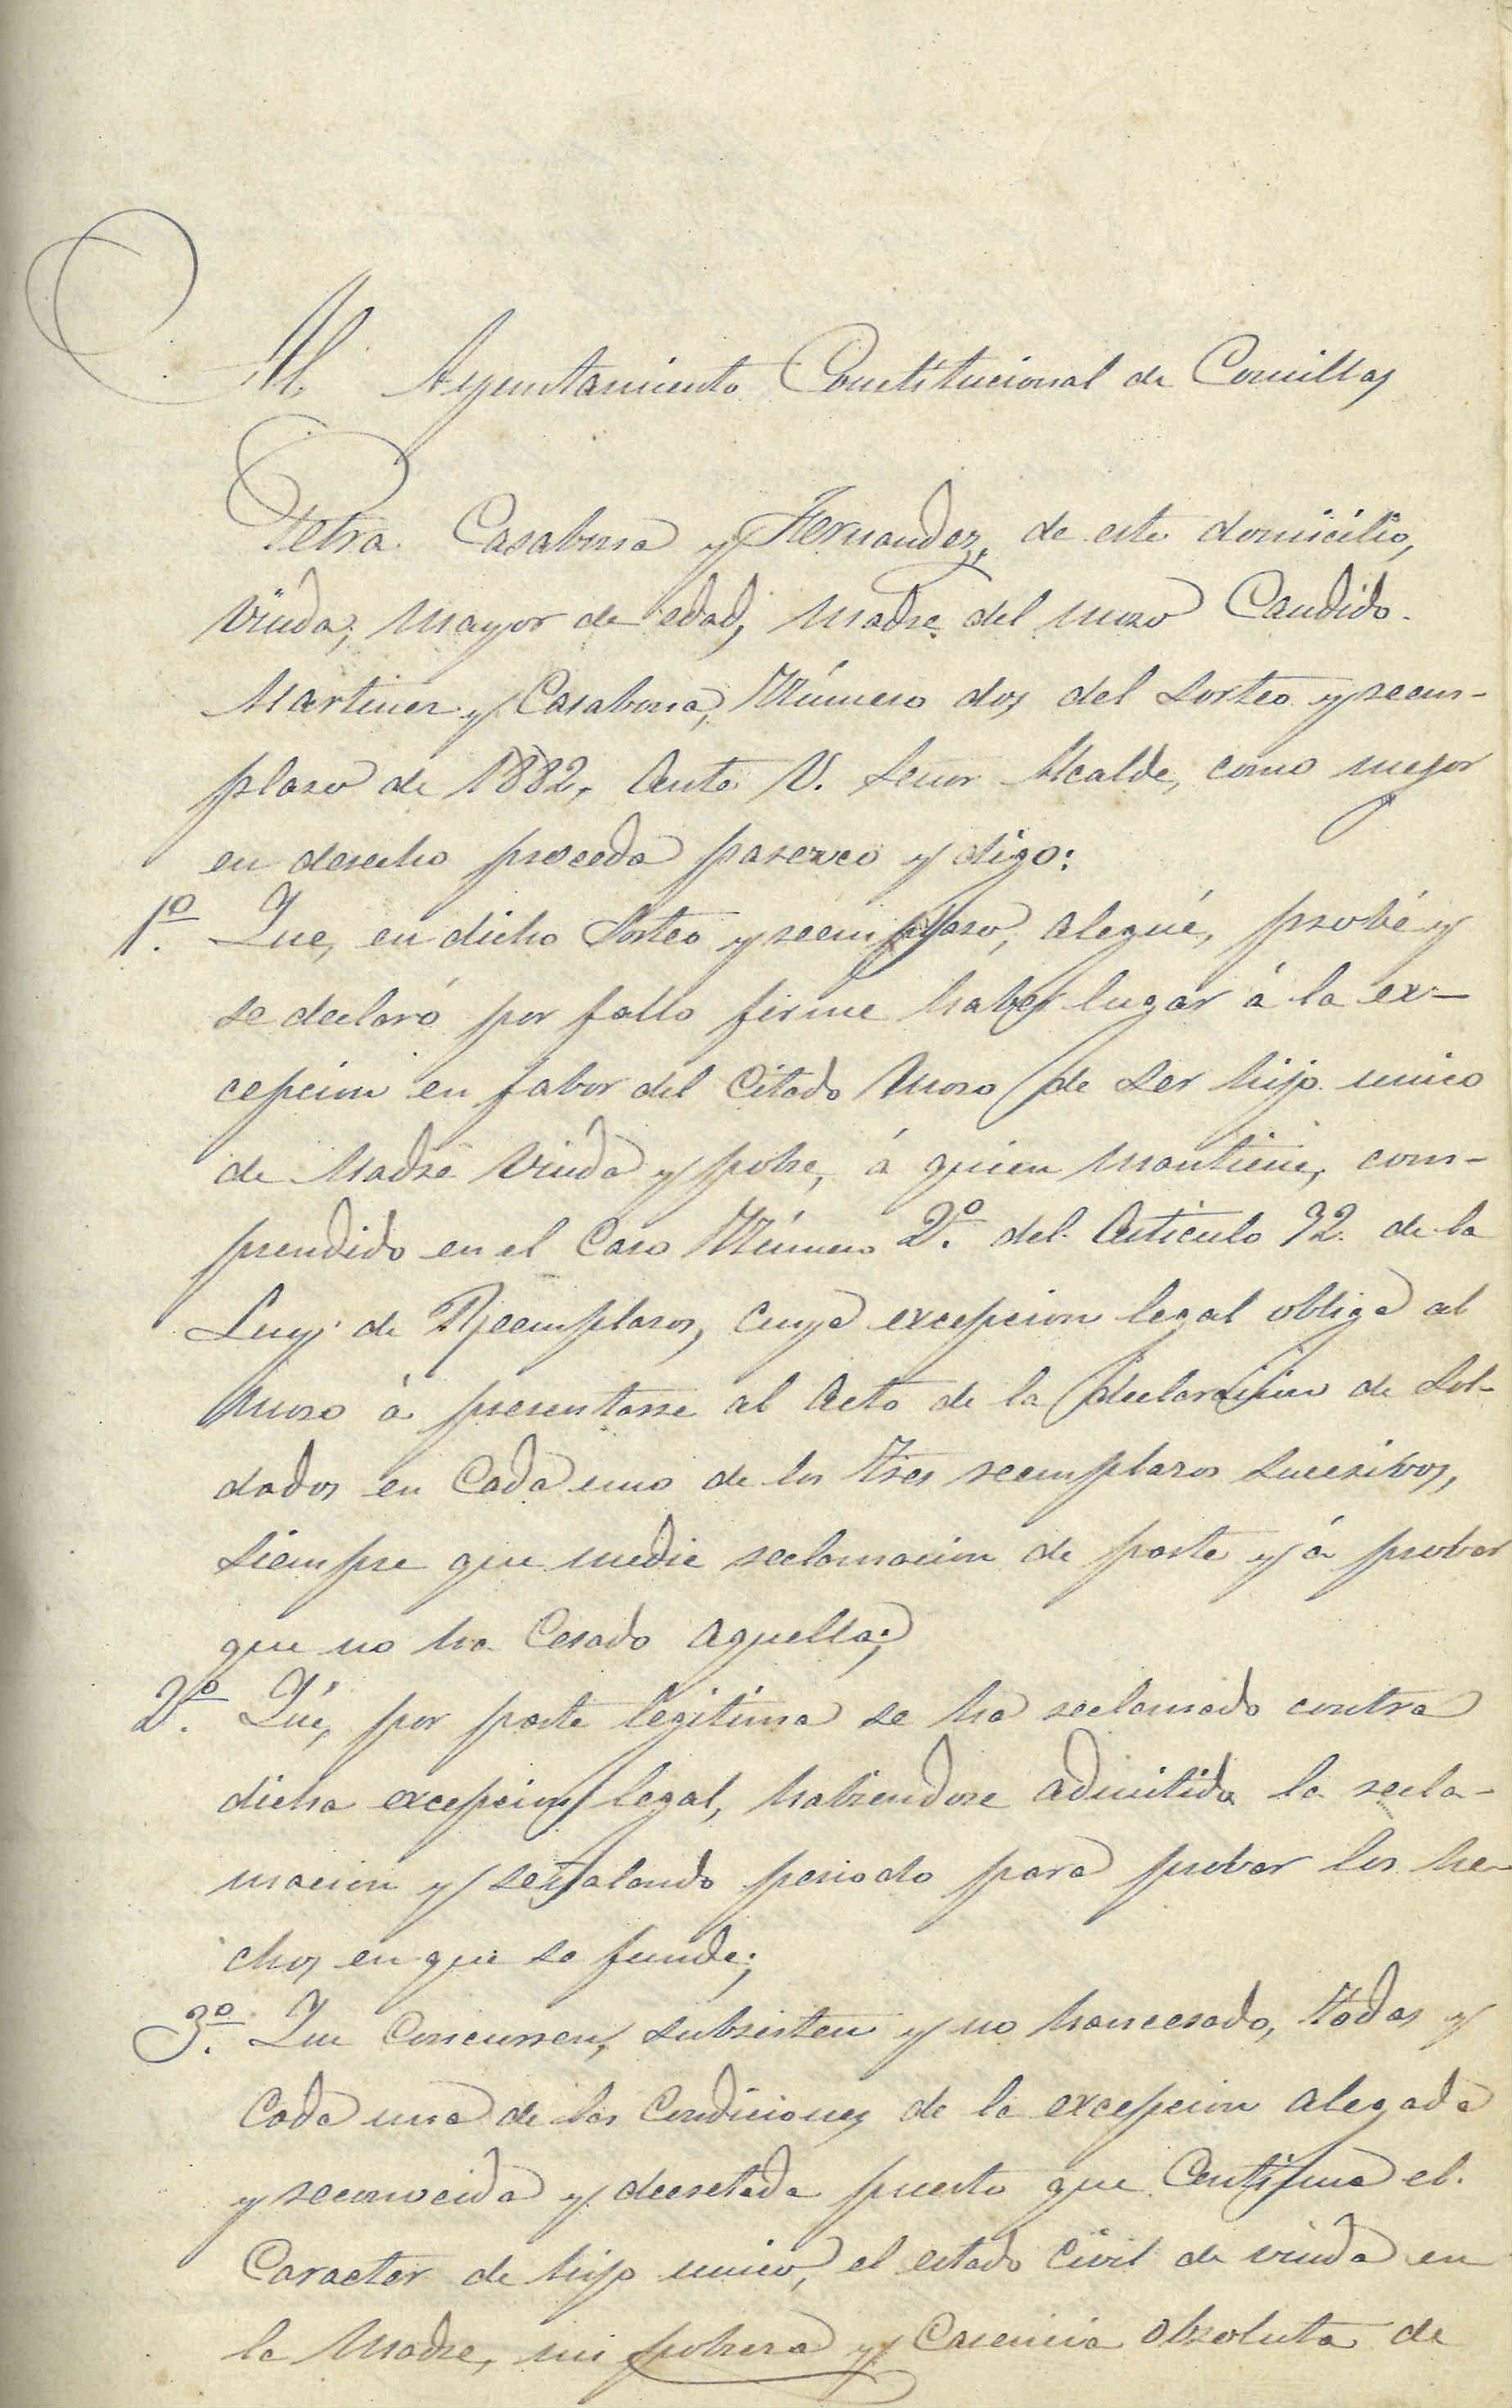 Al Ayuntamiento Constitucional de Comillas
Petra Casabona y Hernandez, de este domicilio,
viuda, mayor de edad, madre del mozo Candido
Martinez y Casabona, Número dos del sorteo y reem-
plazo de 1882, ante V. Señor Alcalde, como mejor
en derecho proceda parezco y digo:
1º. Que, en dicho Sorteo y reemplazo, alegué, probé y
se declaró por fallo firme haber lugar á la ex-
cepcion en fabor del citado mozo de ser hijo unico
de madre viuda y pobre, á quien mantiene, com-
prendido en el caso Número 2º. del Articulo 92. de la
Ley de Reemplazos, cuya excepcion legal obliga al
mozo á presentarse al acto de la declaracion de sol-
dados en cada uno de los tres reemplazos sucesivos,
siempre que medie reclamacion de parte y á probar
que no ha cesado aquella;
2º. Qué, por parte legítima se ha reclamado contra
dicha excepcion legal, habiendose admitido la recla-
macion y señalando periodo para probar los he-
chos en que se funde;
3º. Que concurren, subsisten y no han cesado, todas y
cada una de las condiciones de la excepcion alegada
y reconocida y decretada puesto que continua el
caracter de hijo unico, el estado civil de viuda en
la madre, mi pobreza y carencia absoluta de